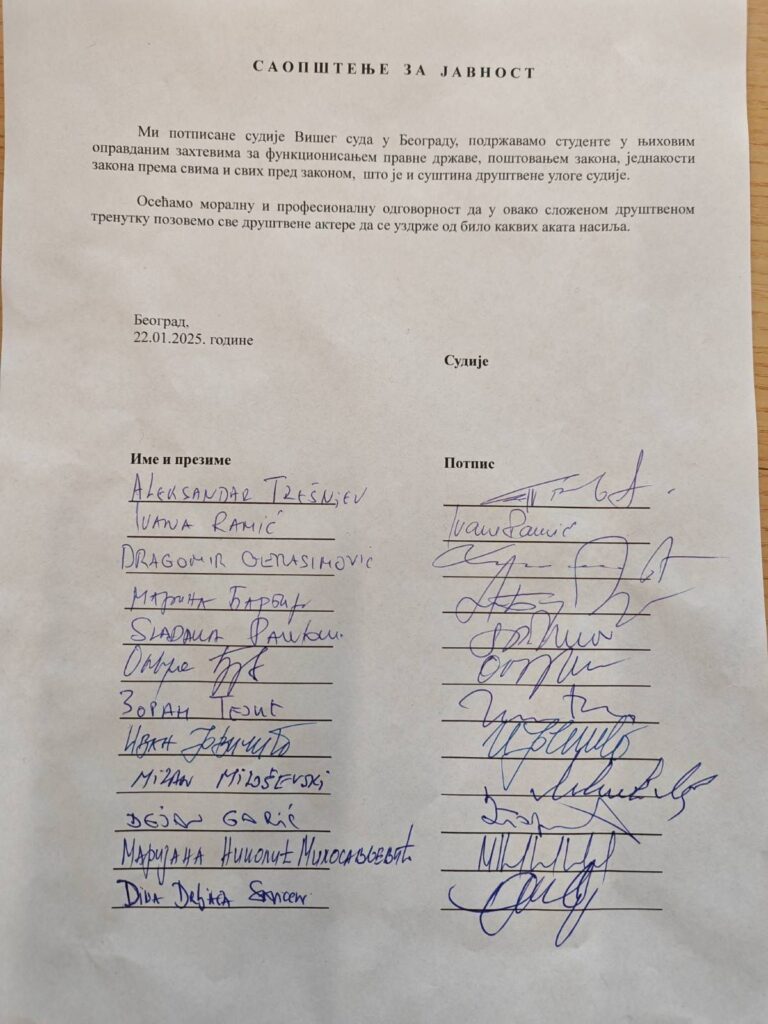 САОПШТЕЊЕ ЗА ЈАВНОСТ
Ми потписане судије Вишег суда у Београду, подржавамо студенте у њиховим
оправданим захтевима за функционисањем правне државе, поштовањем закона, једнакости
закона према свима и свих пред законом, што је и суштина друштвене улоге судије.
Осећамо моралну и професионалну одговорност да у овако сложеном друштвеном
тренутку позовемо све друштвене актере да се уздрже од било каквих аката насиља.
Београд,
22.01.2025. године
Судије
Име и презиме
Потпис
ALEKSANDAR TREŠNJEV
IVANA RAMIĆ
Ivana Ramić
DRAGOMIR GERASIMOVIĆ
Марина Барбир
SLAĐANA
ЗОРАН
ИВАН
MILAN MILOŠEVSKI
DEJAN GARIĆ
МАРИЈАНА НИКОЛИЋ МИЛОСАВЉЕВИЋ
DINA DRLJAČA